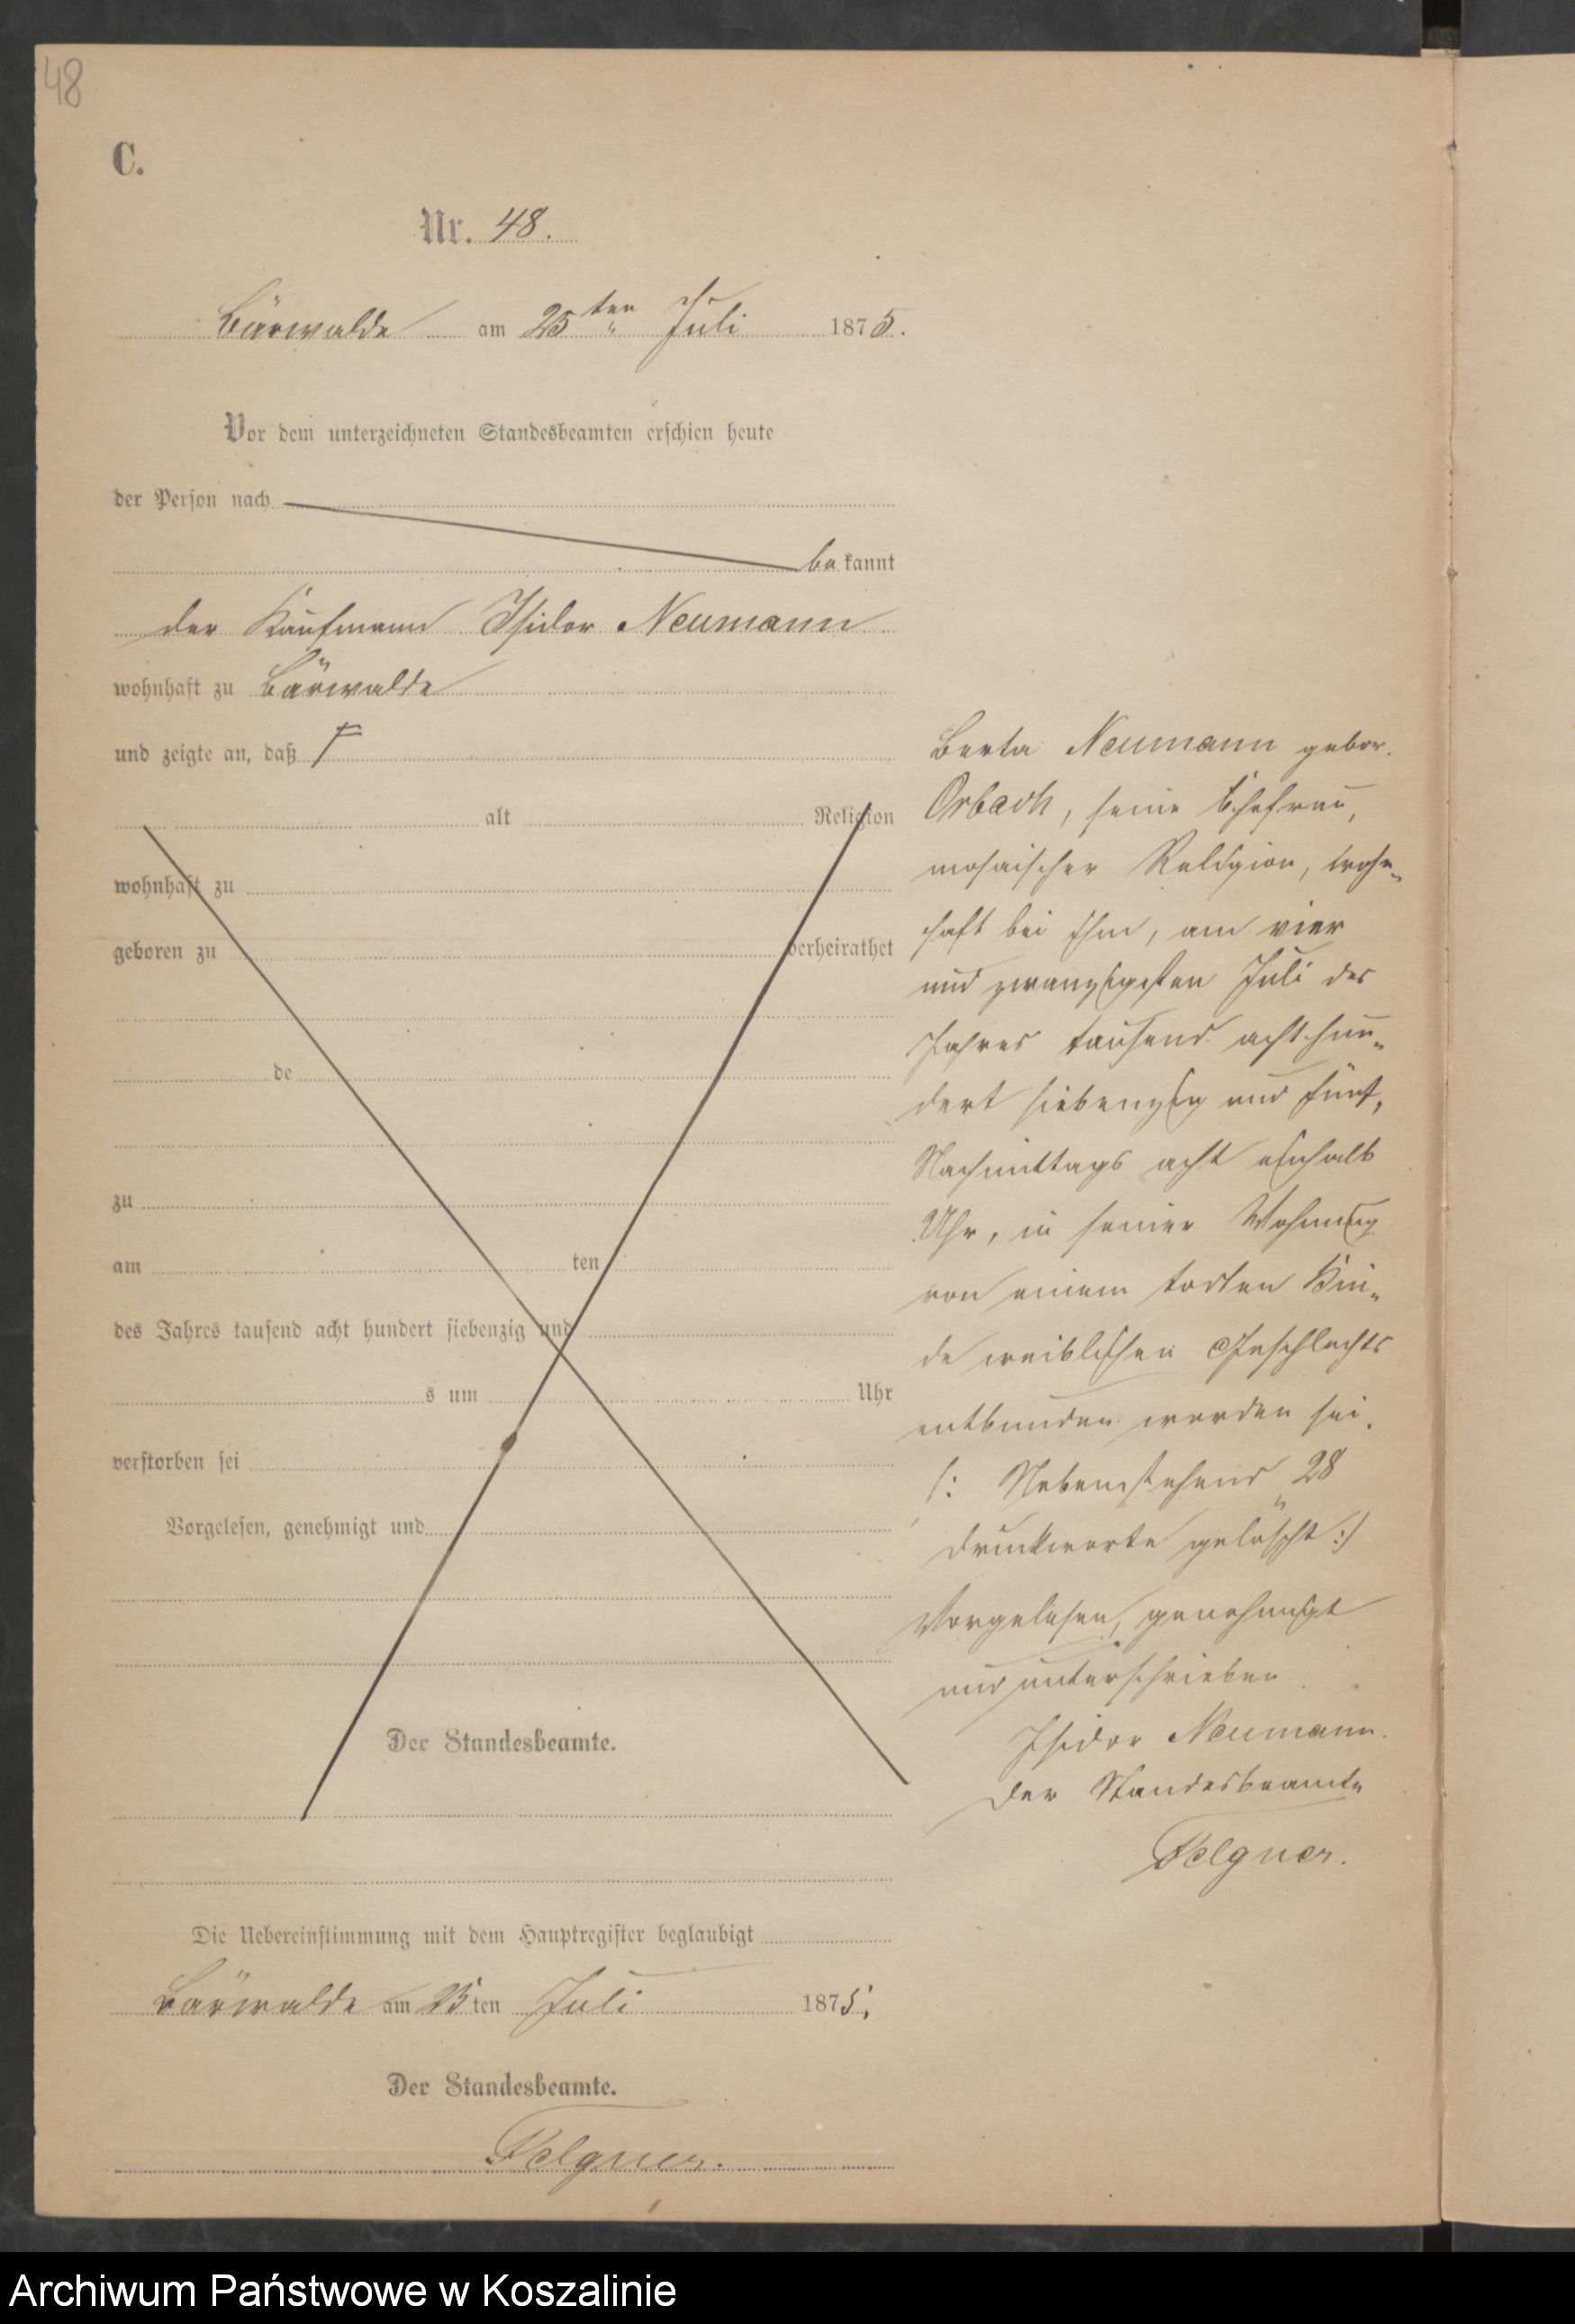 48
C.
Nr. 48.
Bärwalde am 25ten Juli 1875.
Vor dem unterzeichneten Standesbeamten erschien heute
der Person nach
bekannt
der Kaufmann Isidor Neumann
wohnhaft zu Bärwalde
und zeigte an, daß
alt Religion
wohnhaft zu
geboren zu verheirathet
de
zu
am ten
des Jahres tausend acht hundert siebenzig und
s um Uhr
verstorben sei
Vorgelesen, genehmigt und
Der Standesbeamte.
Berta Neumann gebor.
Orbach, seine Ehefrau,
mosaischer Religion, wohn-
haft bei ihm, am vier
und zwanzigsten Juli des
Jahres tausend achthun-
dert siebenzig und fünf,
Nachmittags acht einhalb
Uhr, in seiner Wohnung
von einem todten Kin-
de weiblichen Geschlechts
entbunden worden sei.
(: Nebenstehend 28
Druckworte gelöscht :)
Vorgelesen, genehmigt
und unterschrieben
Isidor Neumann.
Der Standesbeamte
Felgner.
Die Uebereinstimmung mit dem Hauptregister beglaubigt
Bärwalde am 25ten Juli 1875.
Der Standesbeamte.
Felgner.
Archiwum Państwowe w Koszalinie